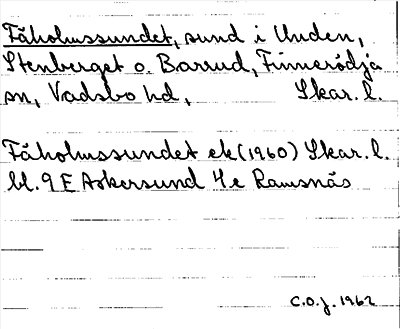 Fåholmssundet, sund i Unden,
Stenberget o. Barrud, Finnerödja
sn, Vadsbo hd, Skar. l.
Fåholmssundet ek (1960) Skar. l.
bl. 9 E Askersund 4 e Ramsnäs
C.O.J. 1962